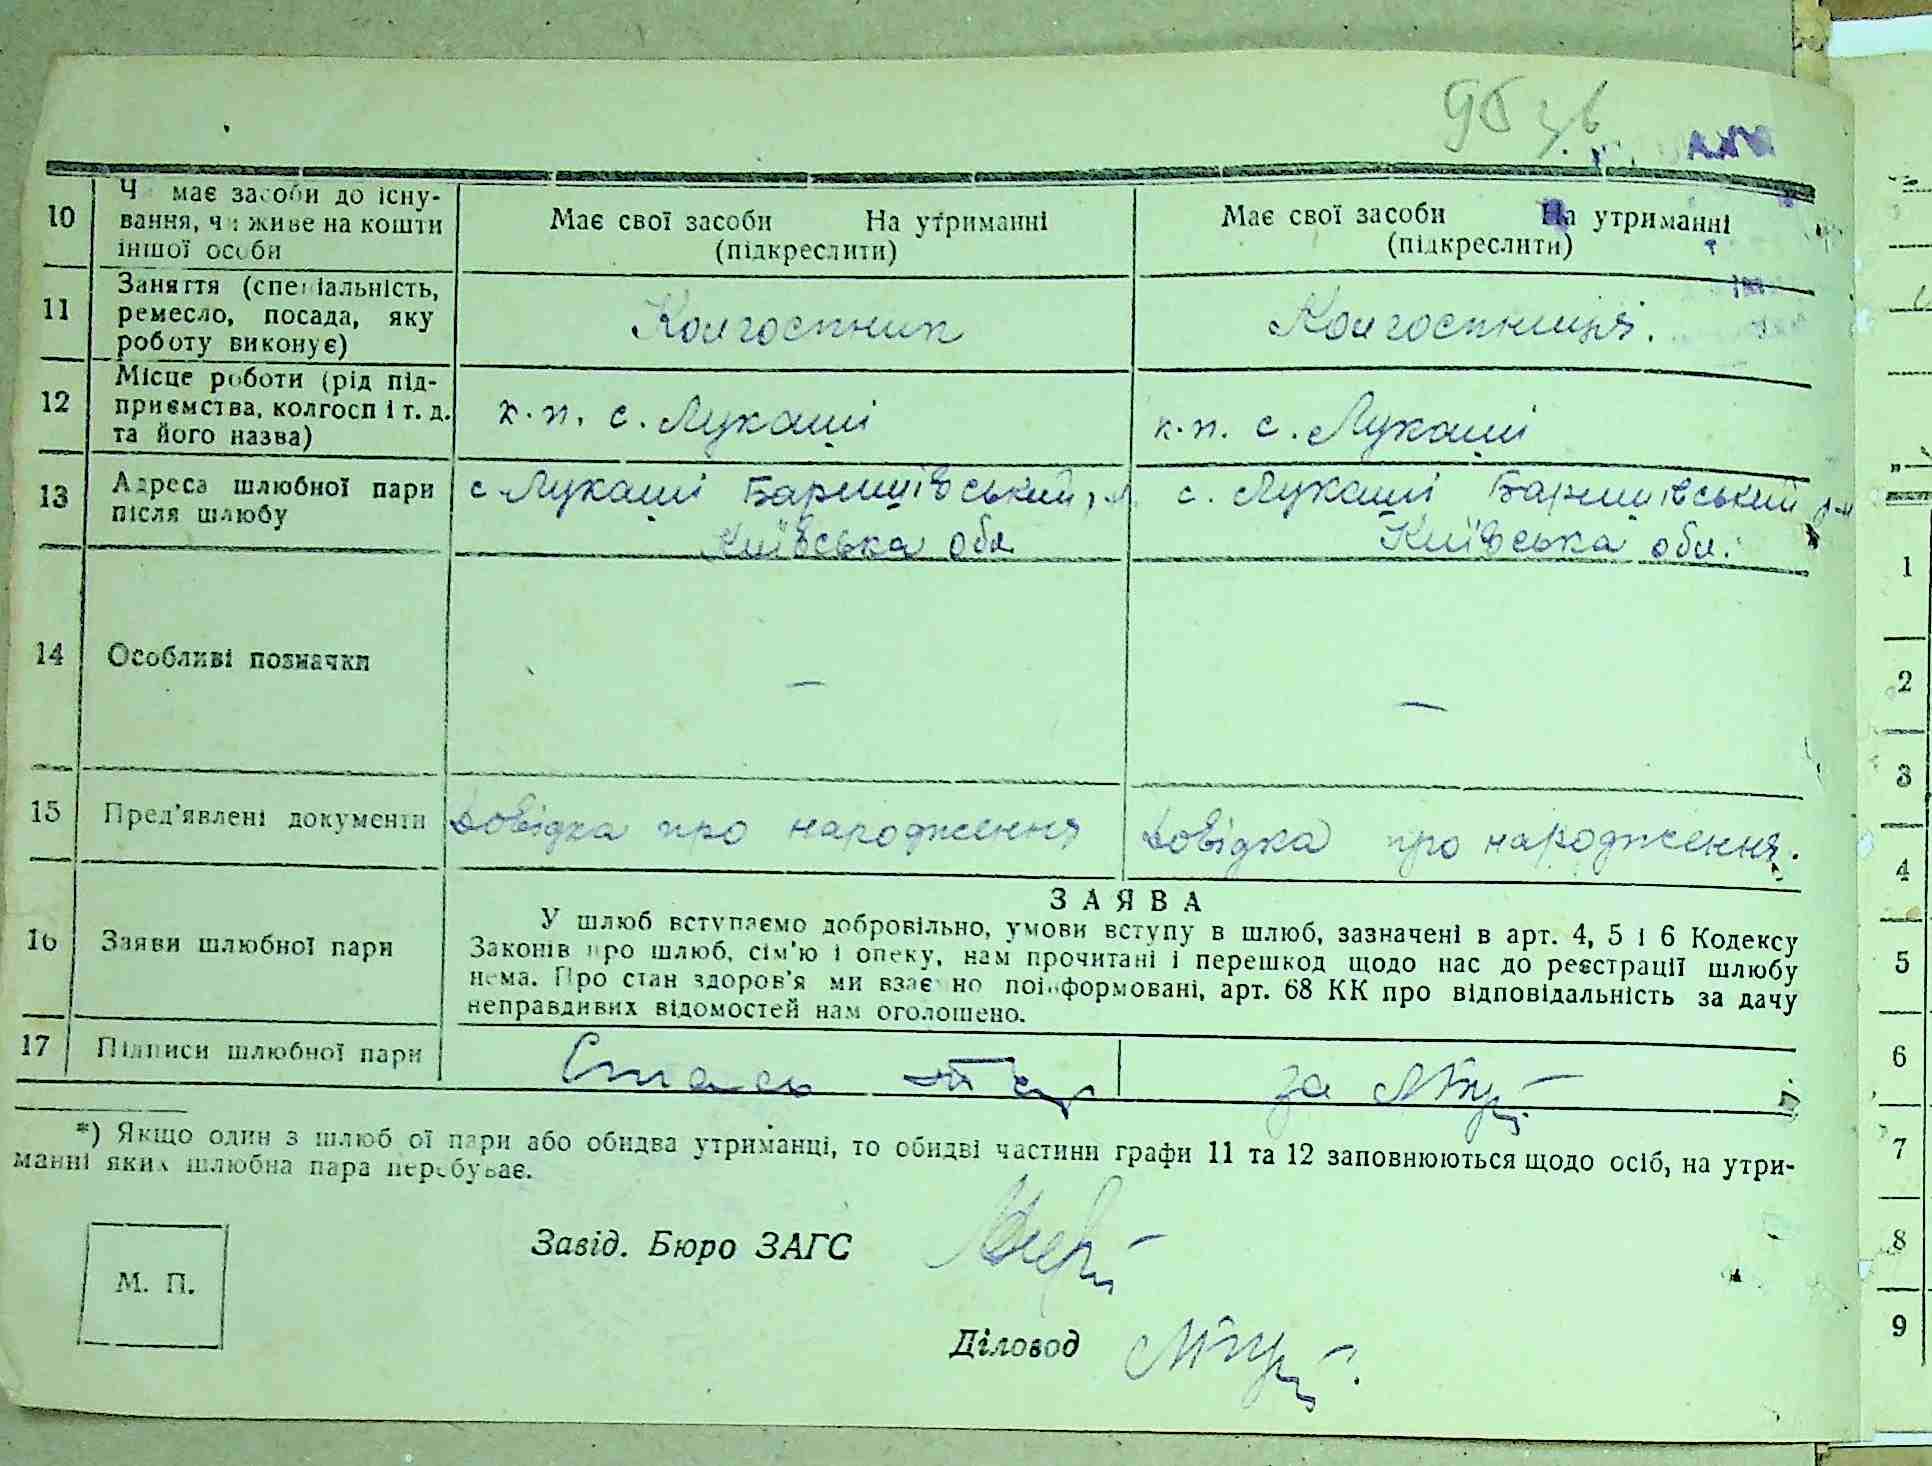 95 зв
10 Чи має засоби до існу-
вання, чи живе на кошти
іншої особи
Має свої засоби На утриманні
(підкреслити)
Має свої засоби На утриманні
(підкреслити)
11 Заняття (спеціальність,
ремесло, посада, яку
роботу виконує)
Колгоспник
Колгоспниця.
12 Місце роботи (рід під-
приємства, колгосп і т. д.
та його назва)
к.п. с. Лукаші
к.п. с. Лукаші
13 Адреса шлюбної пари
після шлюбу
с. Лукаші Баришівський р-н
Київська обл
с. Лукаші Баришівський р-н
Київська обл.
14 Особливі позначки
–
–
15 Пред'явлені документи
Довідка про народження
Довідка про народження.
16 Заяви шлюбної пари
ЗАЯВА
У шлюб вступаємо добровільно, умови вступу в шлюб, зазначені в арт. 4, 5 і 6 Кодексу
Законів про шлюб, сім'ю і опеку, нам прочитані і перешкод щодо нас до реєстрації шлюбу
нема. Про стан здоров'я ми взаємно поінформовані, арт. 68 КК про відповідальність за дачу
неправдивих відомостей нам оголошено.
17 Підписи шлюбної пари
за
*) Якщо один з шлюбної пари або обидва утриманці, то обидві частини графи 11 та 12 заповнюються щодо осіб, на утри-
манні яких шлюбна пара перебуває.
Завід. Бюро ЗАГС
М. П.
Діловод
1
2
3
4
5
6
7
8
9